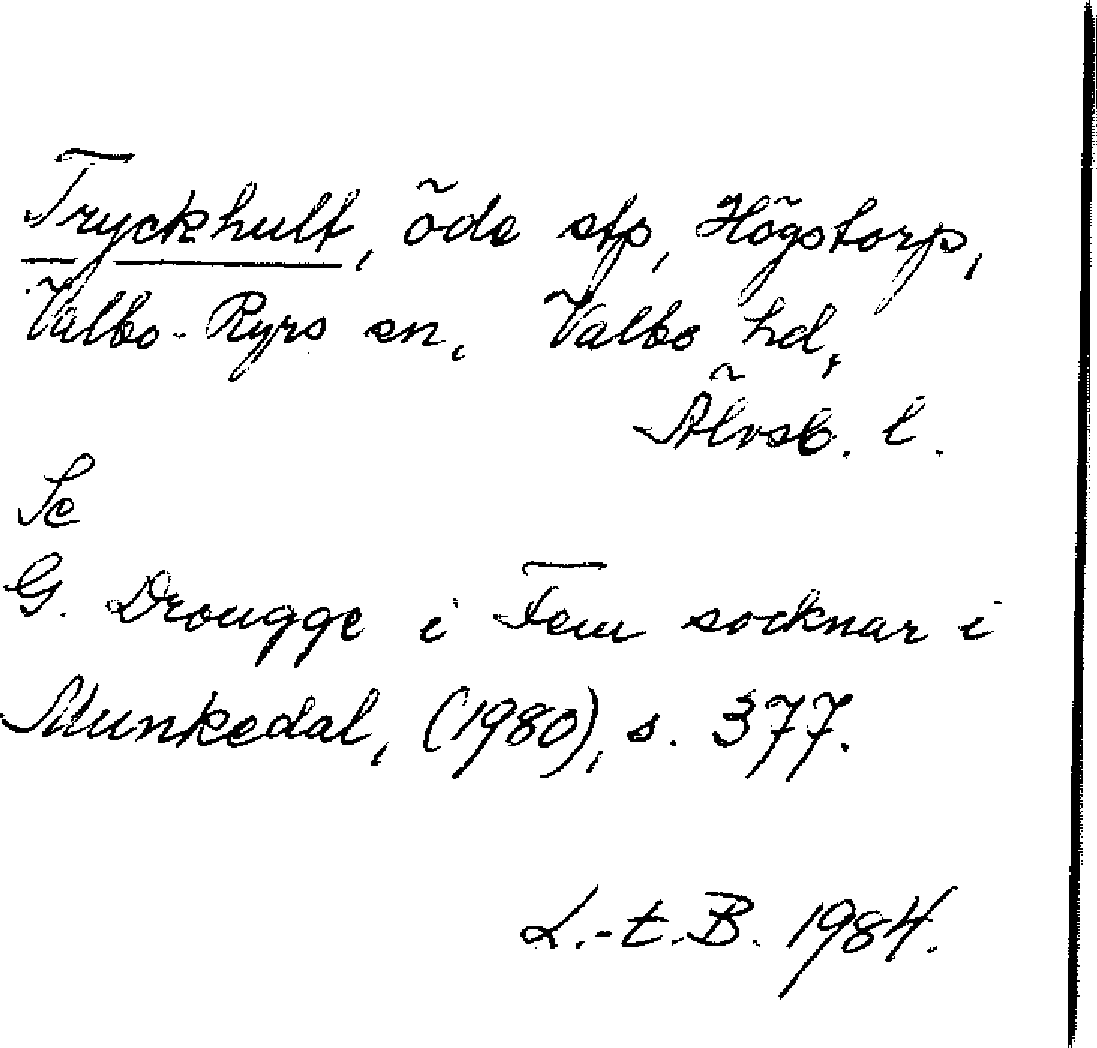 Tryckhult, öde stp, Högstorp,
Valbo-Ryrs sn, Valbo hd,
Älvsb. l.
Se
G. Drougge i Fem socknar i
Munkedal, (1980), s. 377.
L.-t.B. 1984.